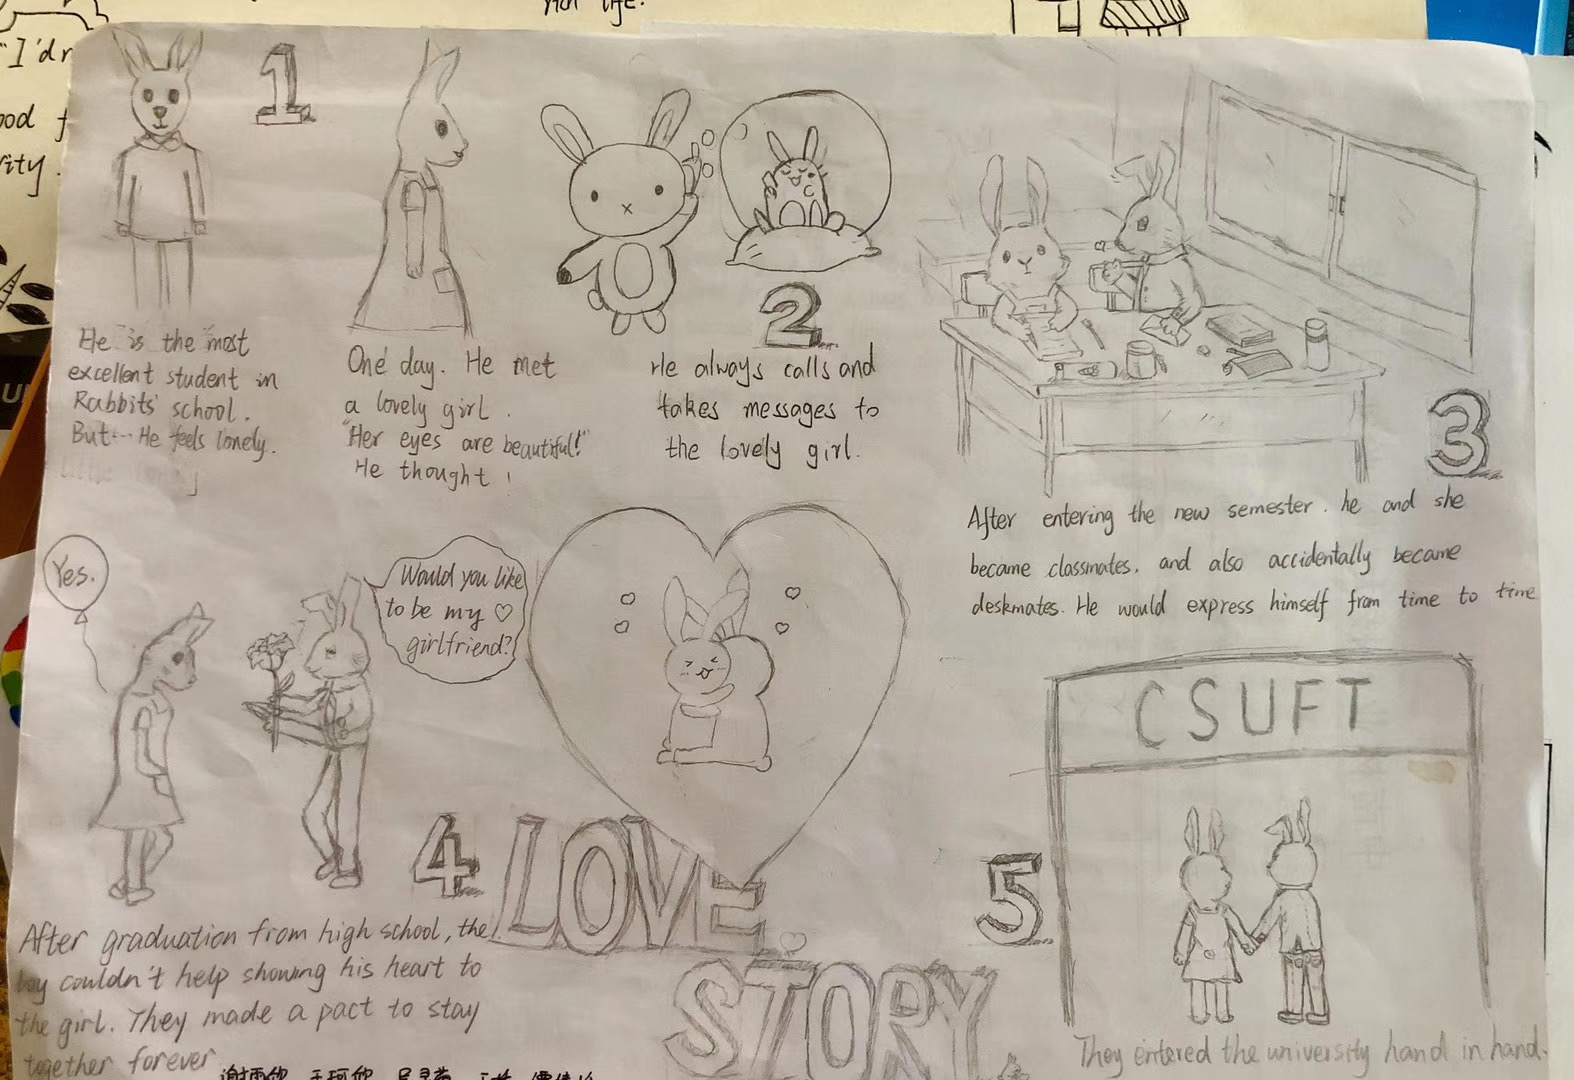 rich life.
"I'd
ood f
rity.
1
He is the most
excellent student in
Rabbits' school.
But... He feels lonely.
One day. He met
a lovely girl.
"Her eyes are beautiful!"
He thought!
2
He always calls and
takes messages to
the lovely girl.
3
After entering the new semester. he and she
became classmates. and also accidentally became
deskmates. He would express himself from time to time
Yes.
Would you like
to be my ♡
girlfriend?
4
After graduation from high school, the
boy couldn't help showing his heart to
the girl. They made a pact to stay
together forever
LOVE
STORY
CSUFT
5
They entered the university hand in hand.